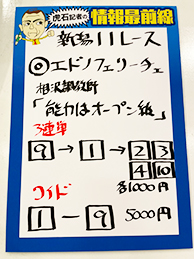 虎石記者の
情報最前線
新潟11レース
◎エドノフェリーチェ
相沢調教師
「能力はオープン級」
3連単
9→1→2 3
4 10
各1000円
ワイド
1-9 5000円